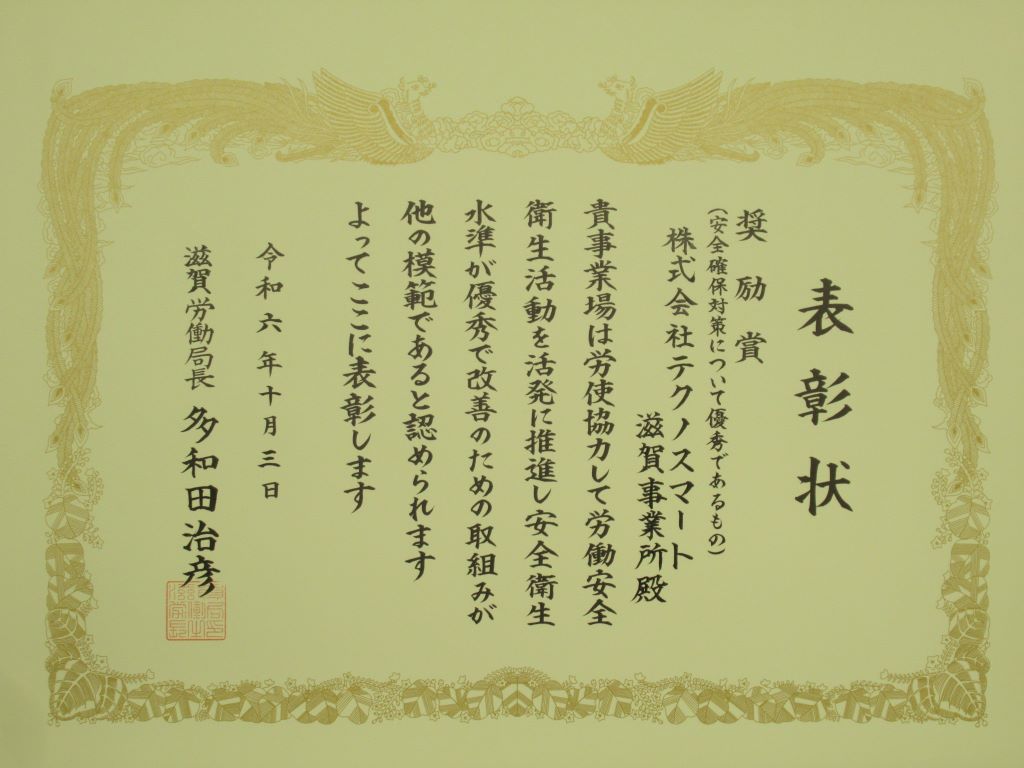 表彰状
奨励賞
(安全確保対策について優秀であるもの)
株式会社テクノスマート
滋賀事業所殿
貴事業場は労使協力して労働安全
衛生活動を活発に推進し安全衛生
水準が優秀で改善のための取組みが
他の模範であると認められます
よってここに表彰します
令和六年十月三日
滋賀労働局長 多和田治彦